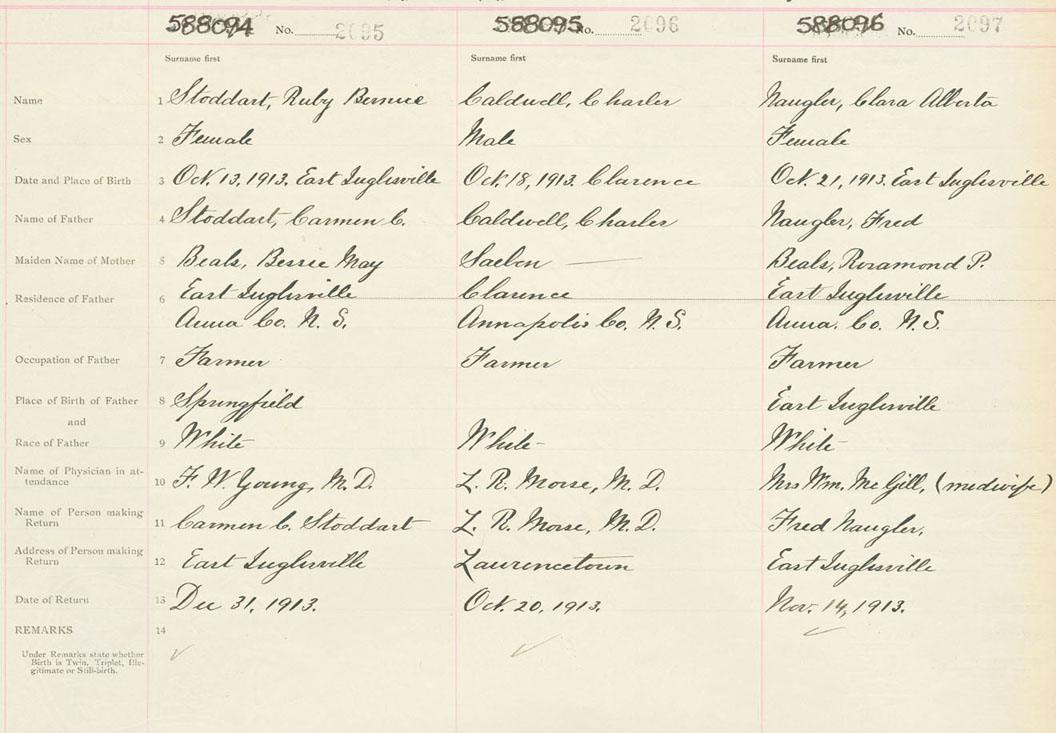 588094 No. 2095 588095 No. 2096 588096 No. 2097
Surname first Surname first Surname first
Name 1 Stoddart, Ruby Bernice Caldwell, Charles Naugler, Clara Alberta
Sex 2 Female Male Female
Date and Place of Birth 3 Oct. 13, 1913. East Inglisville Oct. 18, 1913. Clarence Oct. 21, 1913. East Inglisville
Name of Father 4 Stoddart, Carmen C. Caldwell, Charles Naugler, Fred
Maiden Name of Mother 5 Beals, Bessie May Beals, Rosamond P.
Residence of Father 6 East Inglisville Clarence East Inglisville
Anna Co. N. S. Annapolis Co. N. S. Anna. Co. N. S.
Occupation of Father 7 Farmer Farmer Farmer
Place of Birth of Father 8 Springfield East Inglisville
and
Race of Father 9 White White White
Name of Physician in at-
tendance 10 F. W. Young, M. D. L. R. Morse, M. D. Mrs Wm. McGill, (midwife)
Name of Person making
Return 11 Carmen C. Stoddart L. R. Morse, M. D. Fred Naugler,
Address of Person making
Return 12 East Inglisville Laurencetown East Inglisville
Date of Return 13 Dec 31, 1913. Oct. 20, 1913. Nov. 14, 1913.
REMARKS 14
Under Remarks state whether
Birth is Twin, Triplet, Ille-
gitimate or Still-birth.